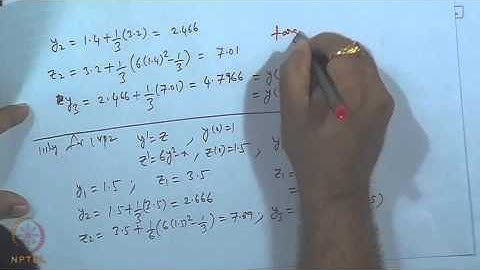 y₂ = 1.4 + 1/3 (3.2) = 2.466
z₂ = 3.2 + 1/3 (6(1.4)² - 1/3) = 7.01
y₃ = 2.466 + 1/3 (7.01) = 4.7966 = y(
= y(
targ
111ly for IVP2 y' = z , y(0) = 1
z' = 6y² - x , z(0) = 1.5 ,
y₁ = 1.5 , z₁ = 3.5
z₁ =
=
y₂ = 1.5 + 1/3 (3.5) = 2.666
z₂ = 3.5 + 1/6 (6(1.5)² - 1/3) = 7.89 , y₃ =
5)
NPTEL